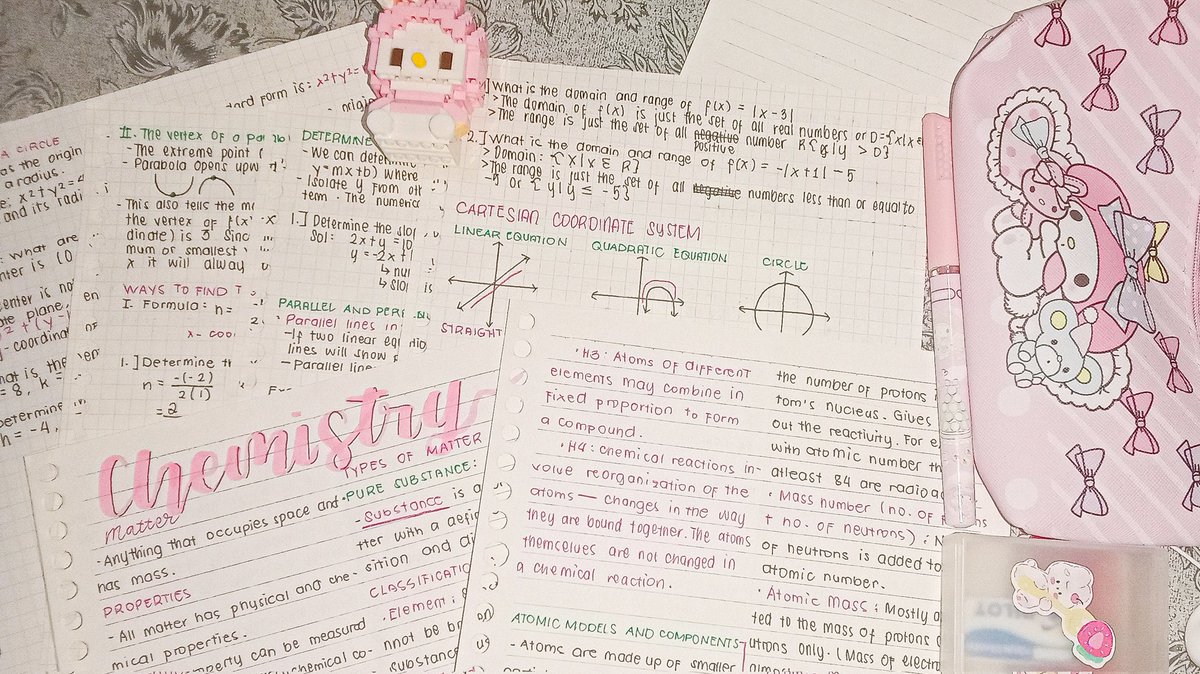 A CIRCLE
as the origin
a radius.
x²+y²=
and its radi
what are
enter is (0
enter is no
plane
coordinat
what is the
= 8, k =
Determine
h = -4,
dard form is: x²+y²=
II. The vertex of a
- The extreme point
- Parabola opens upw
- This also tells the
the vertex of f(x)
dinate) is 5 Sinc
mum or smallest
x it will alway
WAYS TO FIND T
I. Formula: n =
x- coor
1.] Determine th
n = -(-2)
2(1)
= 2
DETERMINE
- We can determ
y = mx + b) where
- Isolate y from oth
term. The numeric
1.] Determine the slop
Sol: 2x + y = 10
y = -2x + 1
↳ nu
↳ slop is
PARALLEL AND PER
Parallel lines in
- If two linear eq
lines will show
- Parallel line
1.] What is the domain and range of f(x) = |x - 3|
> The domain of f(x) is just the set of all real numbers or D = {x|x ∈
> The range is just the set of all negative number R{y|y > 0}
positive
2.] What is the domain and range of f(x) = -|x+1| - 5
> Domain: {x|x ∈ R}
> The range is just the set of all negative numbers less than or equal to
-5 or {y|y ≤ -5}
CARTESIAN COORDINATE SYSTEM
LINEAR EQUATION
QUADRATIC EQUATION
CIRCLE
STRAIGHT
Chemistry
matter
- Anything that occupies space and
has mass.
PROPERTIES
- All matter has physical and che-
mical properties.
property can be measured
chemical co-
TYPES OF MATTER
• PURE SUBSTANCE:
- Substance is a
tter with a defin
sition and di
CLASSIFICATIO
. Element:
nnot be br
substance
• H3: Atoms of different
elements may combine in
fixed proportion to form
a compound.
• H4: chemical reactions in-
volve reorganization of the
atoms — changes in the way
they are bound together. The atoms
themselves are not changed in
a chemical reaction.
ATOMIC MODELS AND COMPONENTS
- Atoms are made up of smaller
the number of protons
tom's nucleus. Gives
out the reactivity. For e
with atomic number th
atleast 84 are radioa
• Mass number (no. of protons
+ no. of neutrons): N
of neutrons is added to
atomic number.
• Atomic Mass: Mostly a
ted to the mass of protons
utrons only. (Mass of electr